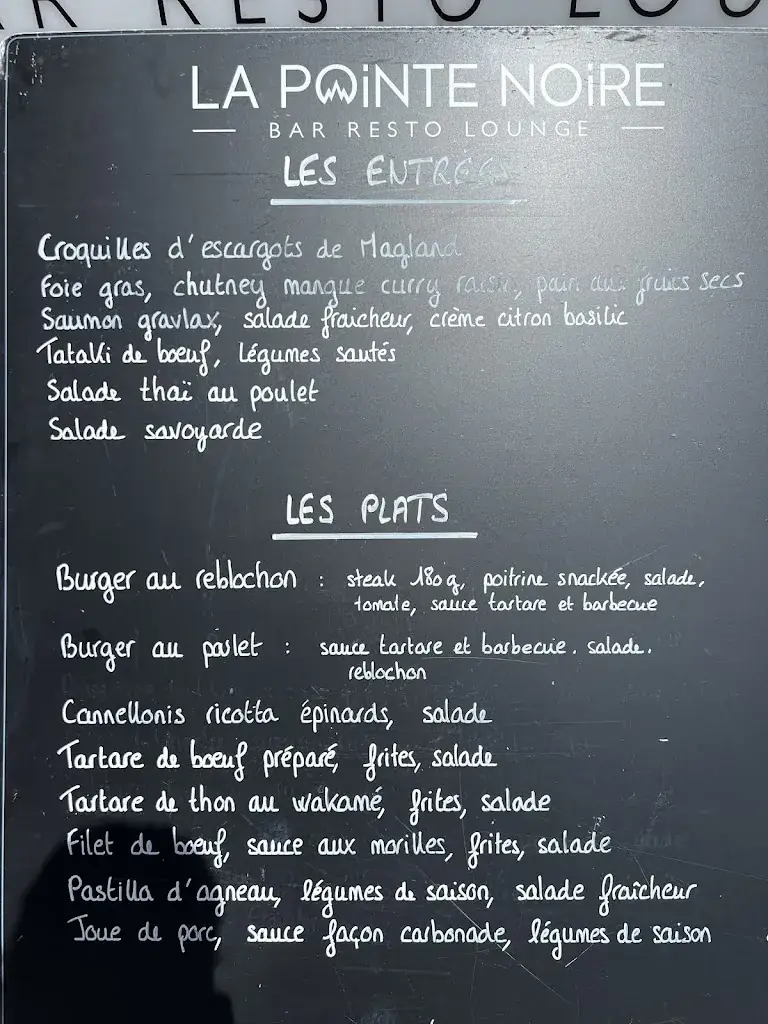 BAR RESTO LOU
LA POiNTE NOiRE
BAR RESTO LOUNGE
LES ENTRÉES
Croquilles d'escargots de Magland
Foie gras, chutney mangue curry raisin, pain aux fruits secs
Saumon gravlax, salade fraicheur, crème citron basilic
Tataki de boeuf, légumes sautés
Salade thaï au poulet
Salade savoyarde
LES PLATS
Burger au reblochon : steak 180g, poitrine snackée, salade,
tomate, sauce tartare et barbecue
Burger au poulet : sauce tartare et barbecue. salade.
reblochon
Cannellonis ricotta épinards, salade
Tartare de boeuf préparé, frites, salade
Tartare de thon au wakamé, frites, salade
Filet de boeuf, sauce aux morilles, frites, salade
Pastilla d'agneau, légumes de saison, salade fraîcheur
Joue de porc, sauce façon carbonade, légumes de saison